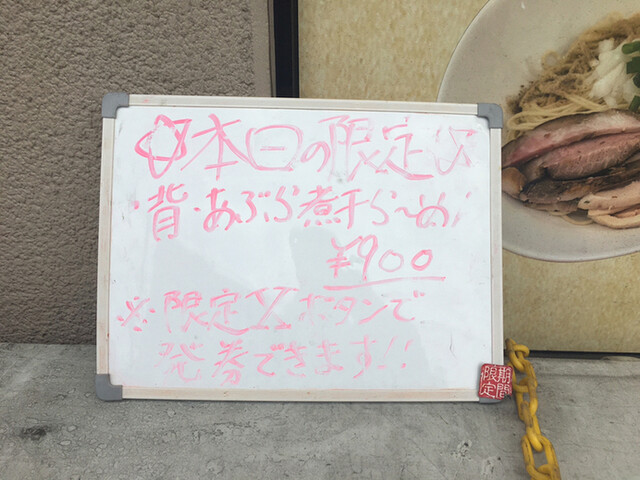 ☆本日の限定☆
・背・あぶら煮干らーめん
¥900
※限定Xボタンで
発券できます!!
期間
限定